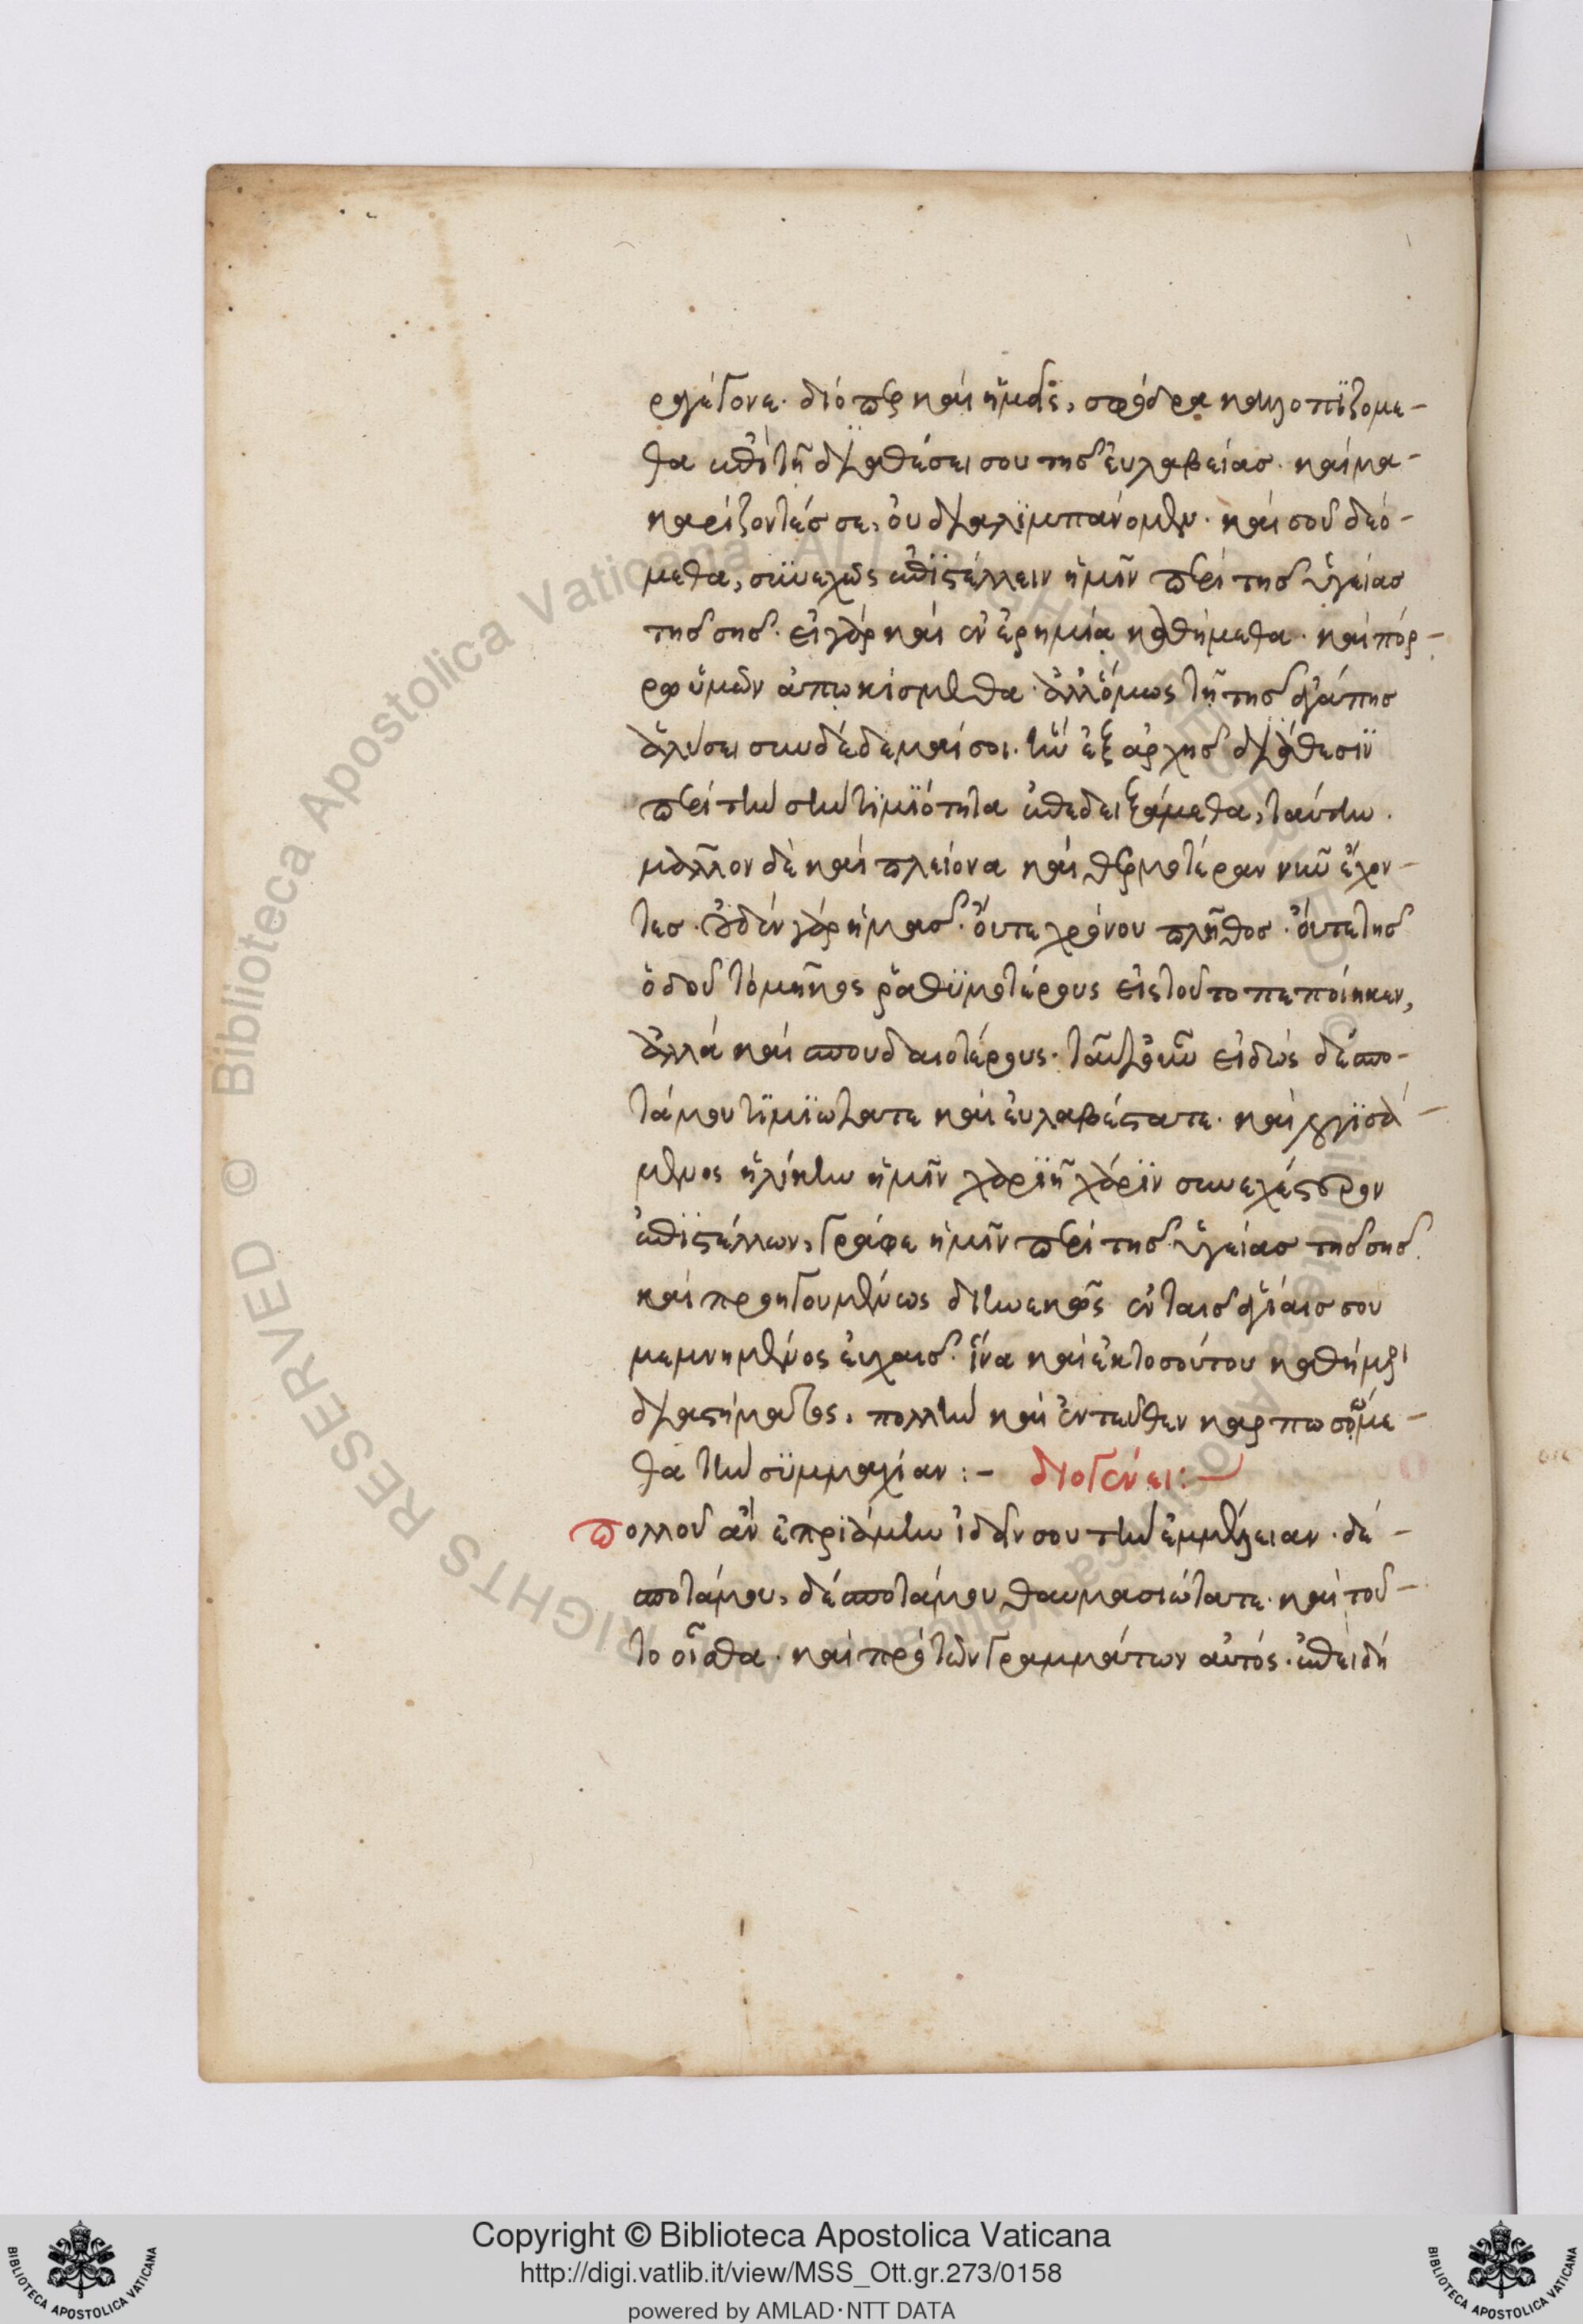 ργέτονε. διόπερ καὶ ἡμεῖς, σφόδρα καλλωπϊζομε-
θα ἐπὶ τῇ διαθέσει σου τῆς εὐλαβείας. καὶ μα-
καρίζοντές σε, οὐ διαλϊμπάνομεν. καὶ σοῦ δεό-
μεθα, συνεχῶς ἐπϊστέλλειν ἡμῖν περὶ τῆς ὑγείας
τῆς σῆς. εἰ γὰρ καὶ ἐν ἐρημία καθήμεθα. καὶ πόρ-
ρω ὑμῶν ἀπωκίσμεθα. ἀλλ' ὅμως τῇ τῆς ἀγάπης
ἁλύσει συνδέδεμαί σοι. ἣν ἐξ ἀρχῆς διάθεσιν
περὶ τὴν σὴν τϊμϊότητα ἐπεδειξάμεθα, ταύτην.
μᾶλλον δὲ καὶ πλείονα καὶ θερμοτέραν νῦν ἔχον-
τες. οὐδὲν γὰρ ἡμᾶς. οὔτε χρόνου πλῆθος. οὔτε τῆς
ὁδοῦ τὸ μῆκος ῥαθυμοτέρους εἰς τοῦτο πεποίηκεν,
ἀλλὰ καὶ σπουδαιοτέρους. ταῦτα οὖν εἰδὼς δέσπο-
τά μου τϊμϊώτατε καὶ εὐλαβέστατε. καὶ λογϊσά-
μενος ἡλίκην ἡμῖν χαρϊῇ χάρϊν συνεχέστερον
ἐπϊστέλλων, γράφε ἡμῖν περὶ τῆς ὑγείας τῆς σῆς.
καὶ προηγουμένως διηνεκῶς ἐν ταῖς ἁγίαις σου
μεμνημένος εὐχαῖς. ἵνα καὶ ἐκ τοσούτου καθήμενοι
διαστήματος, πολλὴν καὶ ἐντεῦθεν καρπωσώμε-
θα τὴν συμμαχίαν :- διογένει :-
πολλοῦ ἂν ἐπριάμην ἰδεῖν σου τὴν ἐμμέλειαν. δέ-
σποτά μου, δέσποτά μου θαυμασιώτατε. καὶ τοῦ-
το οἶσθα. καὶ πρὸ τῶν γραμμάτων αὐτός. ἐπειδὴ
Copyright © Biblioteca Apostolica Vaticana
http://digi.vatlib.it/view/MSS_Ott.gr.273/0158
powered by AMLAD·NTT DATA